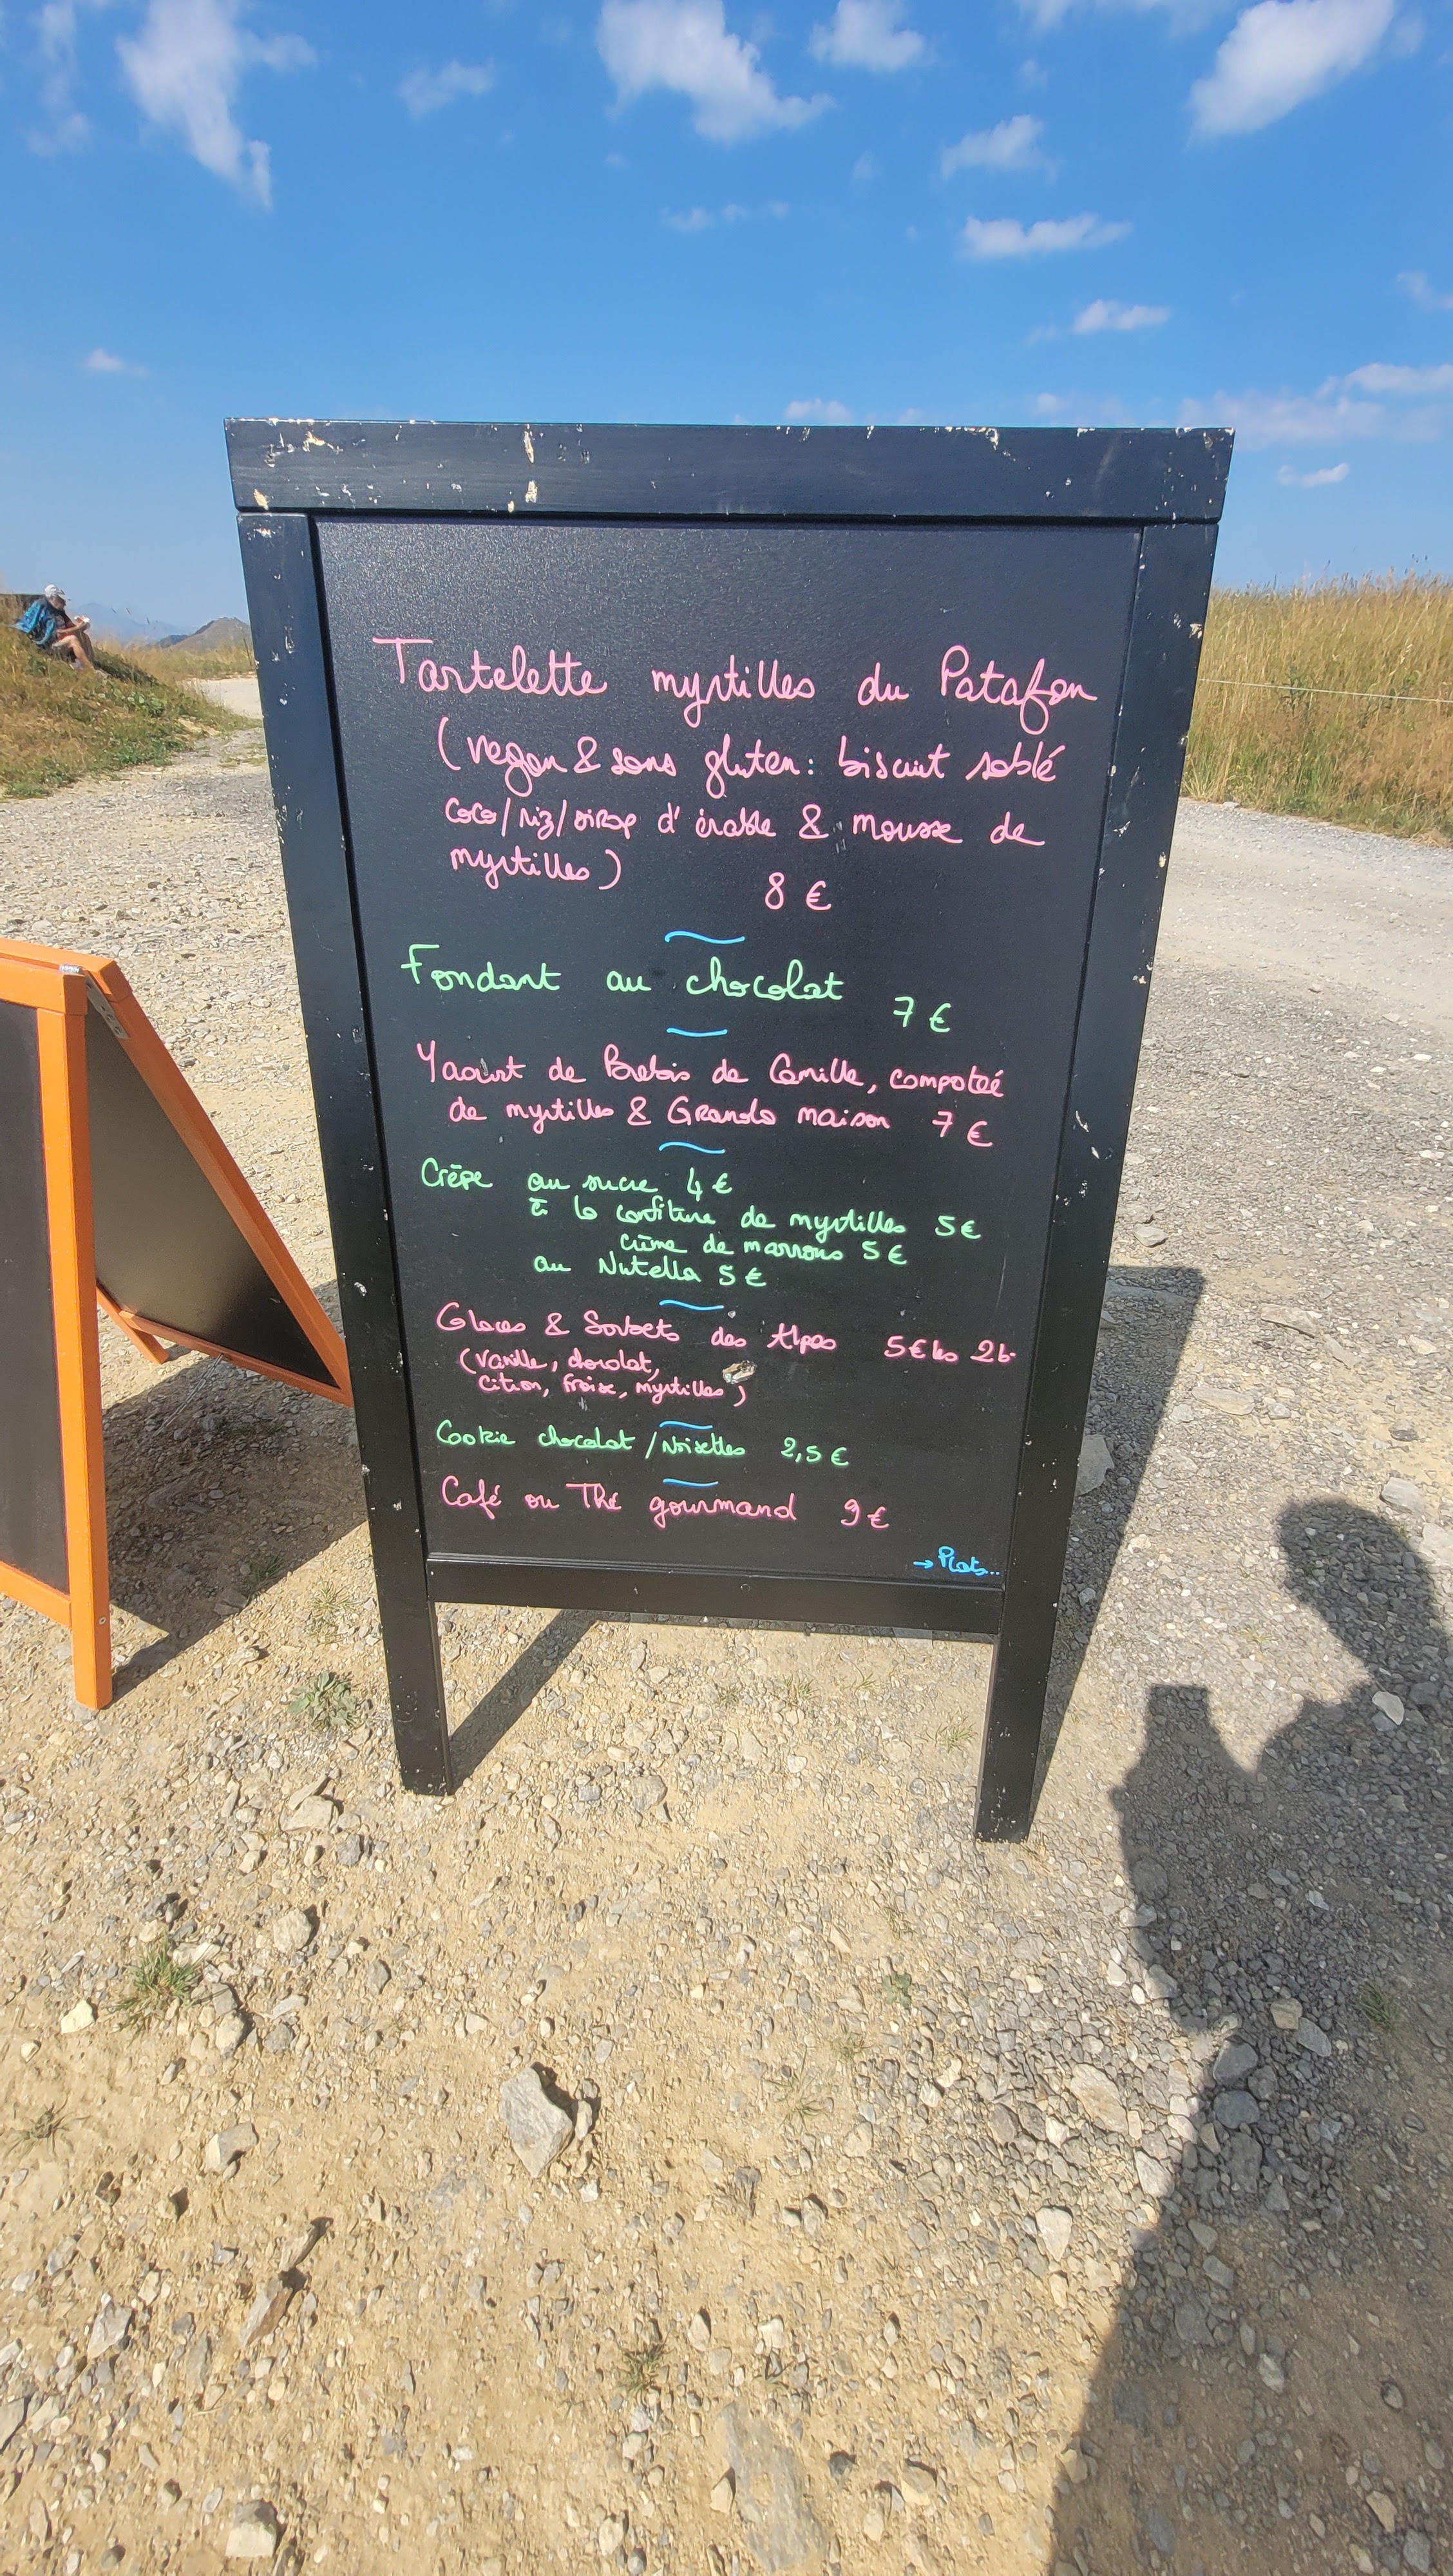 Tartelette myrtilles du Patafon
(vegan & sans gluten: biscuit sablé
coco/riz/sirop d'érable & mousse de
myrtilles)
8 €
Fondant au chocolat 7 €
Yaourt de Brebis de Camille, compoteé
de myrtilles & Granola maison 7 €
Crêpe au sucre 4 €
à la confiture de myrtilles 5 €
crème de marrons 5 €
au Nutella 5 €
Glaces & Sorbets des Alpes 5€ les 2b.
(vanille, chocolat,
citron, fraise, myrtilles)
Cookie chocolat/Noisettes 2,5 €
Café ou Thé gourmand 9 €
→ Plats...